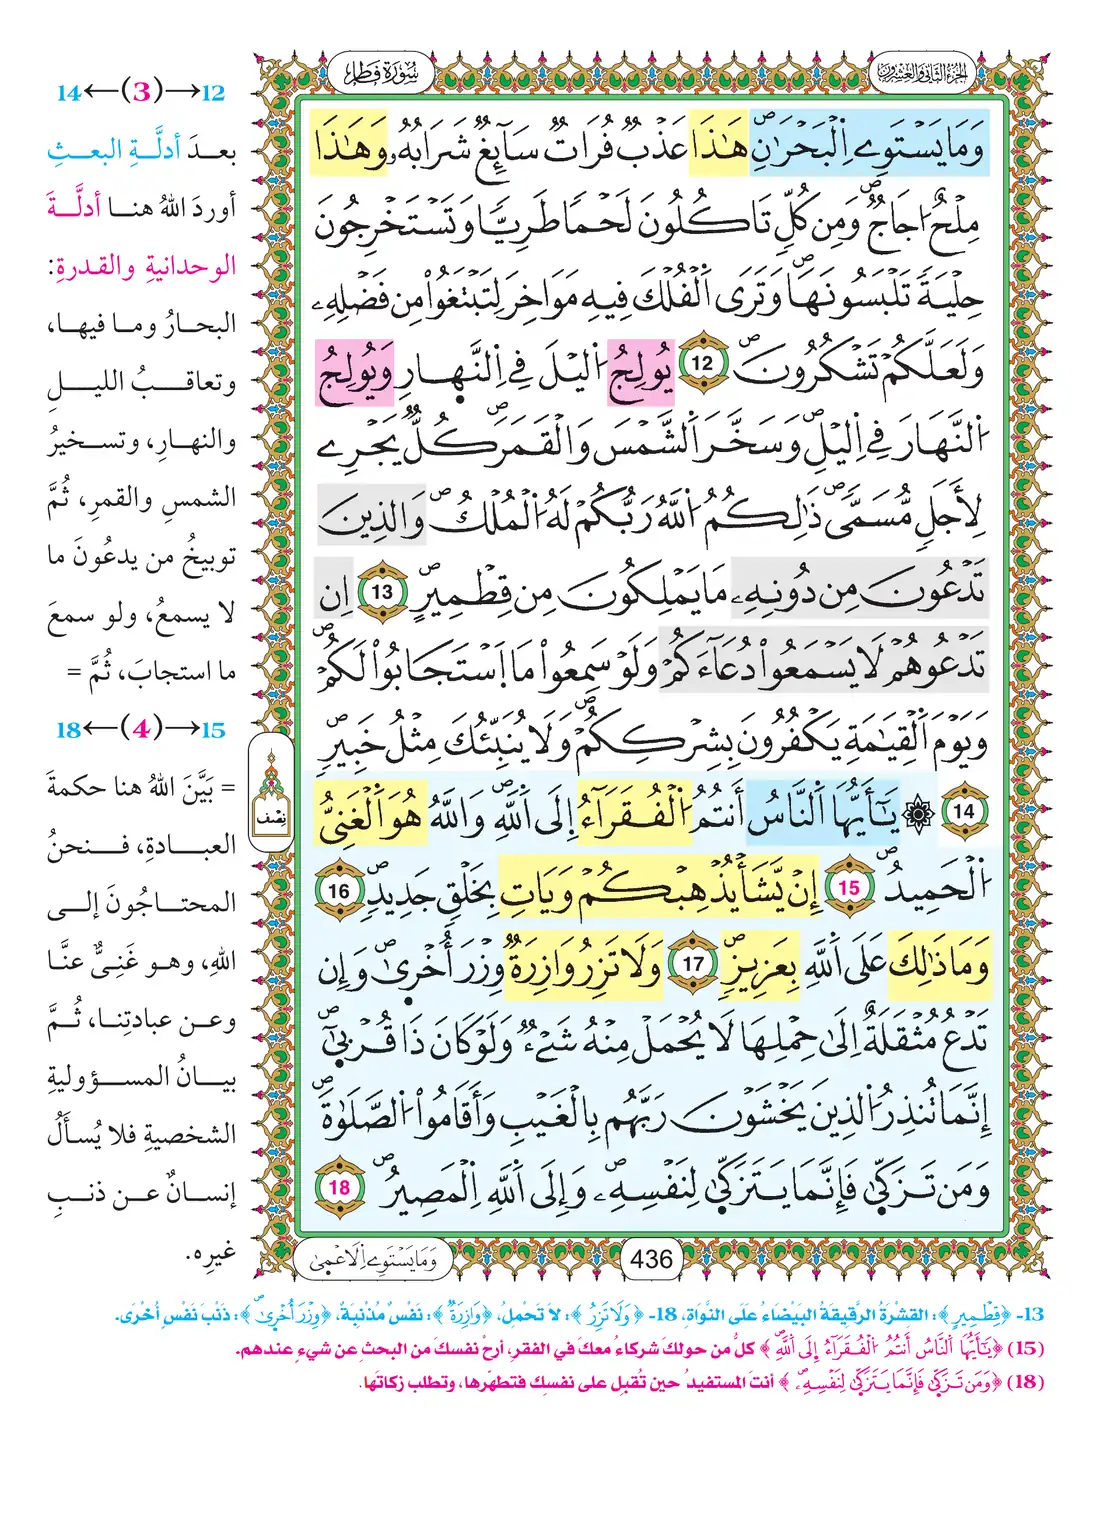 الجزء الثاني والعشرون
سُورَةُ فَاطِر
وَمَا يَسْتَوِے اِ۬لْبَحْرَٰنِ هَٰذَا عَذْبٞ فُرَاتٞ سَآئِغٞ شَرَابُهُۥ وَهَٰذَا
مِلْحٌ اُجَاجٞ وَمِن كُلّٖ تَاكُلُونَ لَحْماٗ طَرِيّاٗ وَتَسْتَخْرِجُونَ
حِلْيَةٗ تَلْبَسُونَهَا وَتَرَى اَ۬لْفُلْكَ فِيهِ مَوَاخِرَ لِتَبْتَغُواْ مِن فَضْلِهِۦ
وَلَعَلَّكُمْ تَشْكُرُونَ 12 يُولِجُ اُ۬ليْلَ فِے اِ۬لنَّهَارِ وَيُولِجُ
اُ۬لنَّهَارَ فِے اِ۬ليْلِ وَسَخَّرَ اَ۬لشَّمْسَ وَالْقَمَرَ كُلّٞ يَجْرِے
لِأَجَلٖ مُّسَمّٗى ذَٰلِكُمُ اُ۬للَّهُ رَبُّكُمْ لَهُ اُ۬لْمُلْكُ وَالذِينَ
تَدْعُونَ مِن دُونِهِۦ مَا يَمْلِكُونَ مِن قِطْمِيرٖ 13 اِن
تَدْعُوهُمْ لَا يَسْمَعُواْ دُعَآءَكُمْ وَلَوْ سَمِعُواْ مَا اَ۪سْتَجَابُواْ لَكُمْ
وَيَوْمَ اَ۬لْقِيَٰمَةِ يَكْفُرُونَ بِشِرْكِكُمْ وَلَا يُنَبِّئُكَ مِثْلُ خَبِيرٖ
14 ۞ يَٰٓأَيُّهَا اَ۬لنَّاسُ أَنتُمُ اُ۬لْفُقَرَآءُ اِلَى اَ۬للَّهِ وَاللَّهُ هُوَ اَ۬لْغَنِيُّ
اُ۬لْحَمِيدُ 15 إِنْ يَّشَأْ يُذْهِبْكُمْ وَيَاتِ بِخَلْقٖ جَدِيدٖ 16
وَمَا ذَٰلِكَ عَلَى اَ۬للَّهِ بِعَزِيزٖ 17 وَلَا تَزِرُ وَازِرَةٞ وِزْرَ أُخْرَىٰ وَإِن
تَدْعُ مُثْقَلَةٌ اِلَىٰ حِمْلِهَا لَا يُحْمَلْ مِنْهُ شَےْءٞ وَلَوْ كَانَ ذَا قُرْبَىٰ
إِنَّمَا تُنذِرُ اُ۬لذِينَ يَخْشَوْنَ رَبَّهُم بِالْغَيْبِ وَأَقَامُواْ اُ۬لصَّلَوٰةَ
وَمَن تَزَكَّىٰ فَإِنَّمَا يَتَزَكَّىٰ لِنَفْسِهِۦ وَإِلَى اَ۬للَّهِ اِ۬لْمَصِيرُ 18
نِصْف
436
وَمَا يَسْتَوِے اِ۬لَاعْمَىٰ
12→(3)←14
بعدَ أدلَّةِ البعثِ
أوردَ اللهُ هنا أدلَّةَ
الوحدانيةِ والقدرةِ:
البحارُ وما فيها،
وتعاقبُ الليلِ
والنهارِ، وتسخيرُ
الشمسِ والقمرِ، ثُمَّ
توبيخُ من يدعُونَ ما
لا يسمعُ، ولو سمعَ
ما استجابَ، ثُمَّ =
15→(4)←18
= بَيَّنَ اللهُ هنا حكمةَ
العبادةِ، فنحنُ
المحتاجُونَ إلى
اللهِ، وهو غَنِيٌّ عنَّا
وعن عبادتِنا، ثُمَّ
بيانُ المسؤوليةِ
الشخصيةِ فلا يُسأَلُ
إنسانٌ عن ذنبِ
غيرِه.
13- ﴿قِطْمِيرٖ﴾: القِشْرَةُ الرَّقِيقَةُ البَيْضَاءُ عَلَى النَّوَاةِ، 18- ﴿وَلَا تَزِرُ﴾: لا تَحْمِلُ، ﴿وَازِرَةٞ﴾: نَفْسٌ مُذْنِبَةٌ، ﴿وِزْرَ أُخْرَىٰ﴾: ذَنْبَ نَفْسٍ أُخْرَى.
(15) ﴿يَٰٓأَيُّهَا اَ۬لنَّاسُ أَنتُمُ اُ۬لْفُقَرَآءُ اِلَى اَ۬للَّهِ﴾ كلُّ من حولكَ شركاءُ معكَ في الفقرِ، أرحْ نفسكَ من البحثِ عن شيءٍ عندهم.
(18) ﴿وَمَن تَزَكَّىٰ فَإِنَّمَا يَتَزَكَّىٰ لِنَفْسِهِۦ﴾ أنت المستفيدُ حين تُقبِل على نفسِك فتطهّرها، وتطلب زكاتَها.